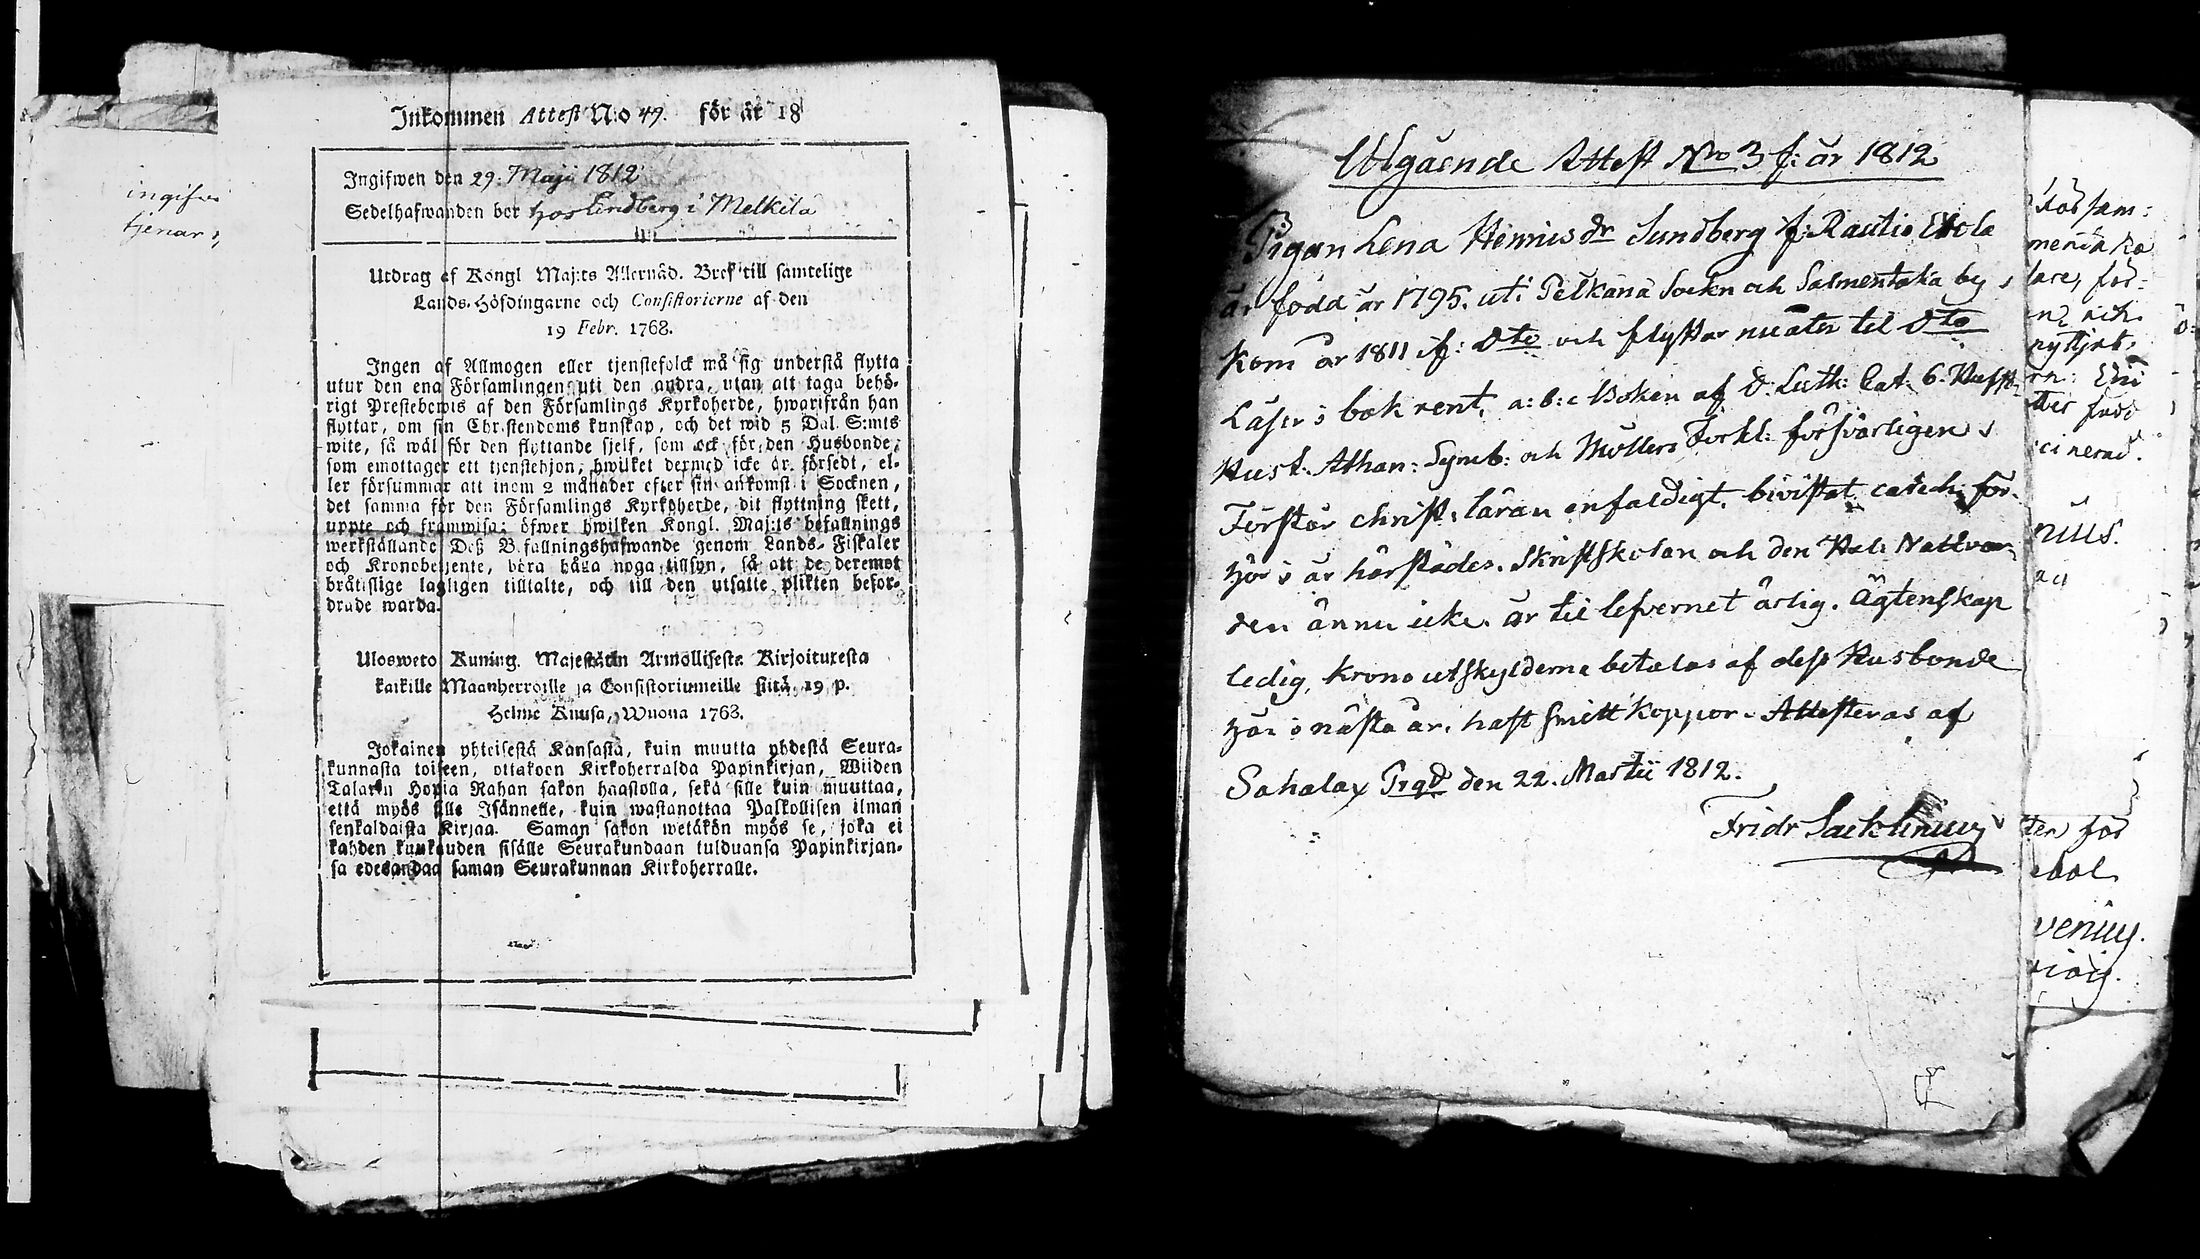 Inkommen Attest N:o 49. för år 18
Ingifwen den 29. Maji 1812
Sedelhafwanden bor hos Lindberg i Melkila
Utdrag af Kongl Maj:ts Allernåd. Bref till samtelige
Lands-Höfdingarne och Consistorierne af den
19 Febr. 1768.
Ingen af Allmogen eller tjenstefolck må sig understå flytta
utur den ena Församlingen uti den andra, utan att taga behö-
rigt Prestebewis af den Församlings Kyrkoherde, hwarifrån han
flyttar, om sin Christendoms kunskap, och det wid 5 Dal. S:mts
wite, så wäl för den flyttande sjelf, som ock för den Husbonde,
som emottager ett tjenstehjon, hwilket dermed icke är försedt, el-
ler försummar att inom 2 månader efter sin ankomst i Socknen,
det samma för den Församlings Kyrkoherde, dit flyttning skett,
uppte och framwisa; öfwer hwilken Kongl. Maj:ts befallnings
werkställande Deß Befallningshafwande genom Lands-Fiskaler
och Kronobetjente, böra hålla noga tillsyn, så att de deremot
brätslige lagligen tilltalte, och till den utsatte plikten befor-
drade warda.
Ulosweto Kuning. Majestätin Armollisesta Kirjoituxesta
kaikille Maanherroille ja Consistoriumeille siitä 19 p.
Helme Kuusa, Wuona 1768.
Jokainen yhteisestä Kansasta, kuin muutta yhdestä Seura-
kunnasta toiseen, ottakoon Kirkoherralda Papinkirjan, Wiiden
Talarin Hopia Rahan sakon haastolla, sekä sille kuin muuttaa,
että myös sille Isännelle, kuin wastanottaa Palkollisen ilman
senkaldaista Kirjaa. Saman sakon wetäkön myös se, joka ei
kahden kuukauden sisälle Seurakundaan tulduansa Papinkirjan-
sa edesandaa saman Seurakunnan Kirkoherralle.
ingifwe
tjenar
Utgående Attest Nro 3 f: år 1812
Pigan Lena Henricsdr Sundberg f: Rautio
är född år 1795. uti Pelkänä Sockn och Salmentaka by,
kom år 1811 if: Dto och flyttar nu åter til Dto
Läser i bok rent, a:b:c Boken af D: Luth: Cat: 6. Hufst:
Hust. Athan: Symb: och Möllers Förkl: försvarligen,
Förstår christ: läran enfaldigt. bivistat catech: för-
hör i år härstädes. Skriftskolan och den Hel: Nattvar-
den ännu icke. är til lefvernet ärlig. Ägtenskap
ledig, krono utskylderne betalas af dess Husbonde
här i nästa år. haft smitt koppor. Attesteras af
Sahalax Prgd den 22. Martii 1812.
Fridr Sacklinius